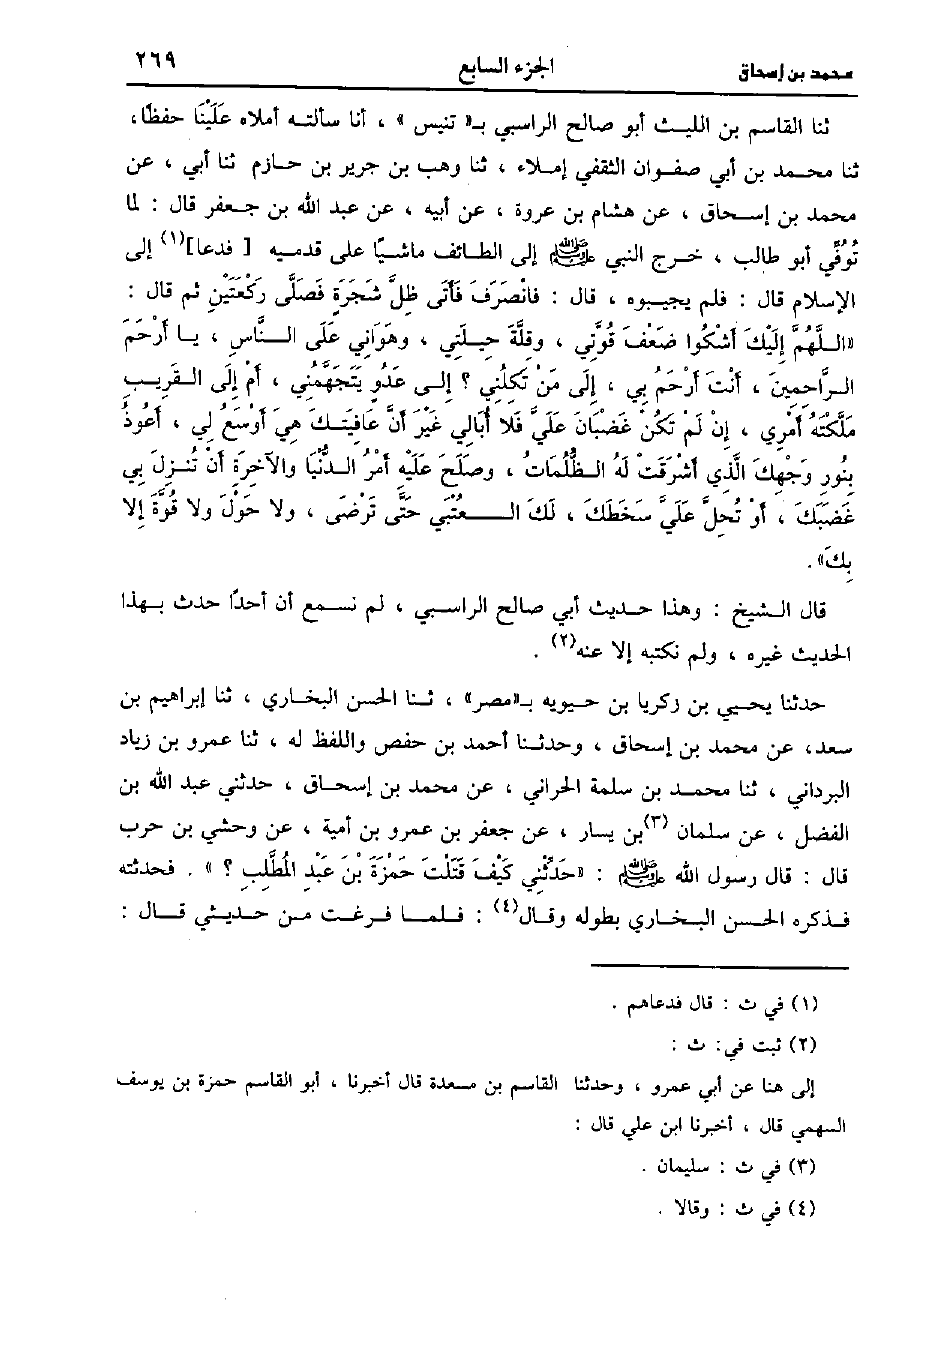 محمد بن إسحاق الجزء السابع ٢٦٩
ثنا القاسم بن الليث أبو صالح الراسبي بـ« تنيس » ، أنا سألته أملاه عَلَيْنَا حفظًا،
ثنا محمد بن أبي صفوان الثقفي إملاء ، ثنا وهب بن جرير بن حازم ثنا أبي ، عن
محمد بن إسحاق ، عن هشام بن عروة ، عن أبيه ، عن عبد الله بن جعفر قال : لما
تُوُفِّي أبو طالب ، خرج النبي ﷺ إلى الطائف ماشيًا على قدميه [ فدعا](١) إلى
الإسلام قال : فلم يجيبوه ، قال : فَانْصَرَفَ فَأَتَى ظِلَّ شَجَرَةٍ فَصَلَّى رَكْعَتَيْنِ ثم قال :
«اللَّهُمَّ إِلَيْكَ أَشْكُوا ضَعْفَ قُوَّتِي ، وقلَّةَ حِيلَتِي ، وهَوَانِي عَلَى النَّاسِ ، يا أَرْحَمَ
الرَّاحِمِينَ ، أَنْتَ أَرْحَمُ بِي ، إِلَى مَنْ تَكِلُنِي ؟ إلى عَدُوٍ يَتَجَهَّمُنِي ، أَمْ إِلَى القَرِيبِ
مَلَّكْتَهُ أَمْرِي ، إِنْ لَمْ تَكُنْ غَضْبَانَ عَلَيَّ فَلا أُبَالِي غَيْرَ أَنَّ عَافِيَتَكَ هِيَ أَوْسَعُ لِي ، أَعُوذُ
بِنُورِ وَجْهِكَ الَّذِي أَشْرَقَتْ لَهُ الظُّلُمَاتُ ، وصَلَحَ عَلَيْهِ أَمْرُ الدُّنْيَا والآخِرَةِ أَنْ تُنْزِلَ بِي
غَضَبَكَ ، أوْ تُحِلَّ عَلَيَّ سَخَطَكَ ، لَكَ العُتْبَي حَتَّى تَرْضَى ، ولا حَوْلَ ولا قُوَّةَ إلا
بِكَ» .
قال الشيخ : وهذا حديث أبي صالح الراسبي ، لم نسمع أن أحدًا حدث بهذا
الحديث غيره ، ولم نكتبه إلا عنه(٢) .
حدثنا يحيي بن زكريا بن حيويه بـ«مصر» ، ثنا الحسن البخاري ، ثنا إبراهيم بن
سعد، عن محمد بن إسحاق ، وحدثنا أحمد بن حفص واللفظ له ، ثنا عمرو بن زياد
البرداني ، ثنا محمد بن سلمة الحراني ، عن محمد بن إسحاق ، حدثني عبد الله بن
الفضل ، عن سلمان (٣)بن يسار ، عن جعفر بن عمرو بن أمية ، عن وحشي بن حرب
قال : قال رسول الله ﷺ : «حَدِّثْنِي كَيْفَ قَتَلْتَ حَمْزَةَ بْنَ عَبْدِ المُطَّلِبِ ؟ » . فحدثته
فذكره الحسن البخاري بطوله وقال(٤) : فلما فرغت من حديثي قال :
(١) في ث : قال فدعاهم .
(٢) ثبت في: ث :
إلى هنا عن أبي عمرو ، وحدثنا القاسم بن مسعدة قال أخبرنا ، أبو القاسم حمزة بن يوسف
السهمي قال ، أخبرنا ابن علي قال :
(٣) في ث : سليمان .
(٤) في ث : وقالا .